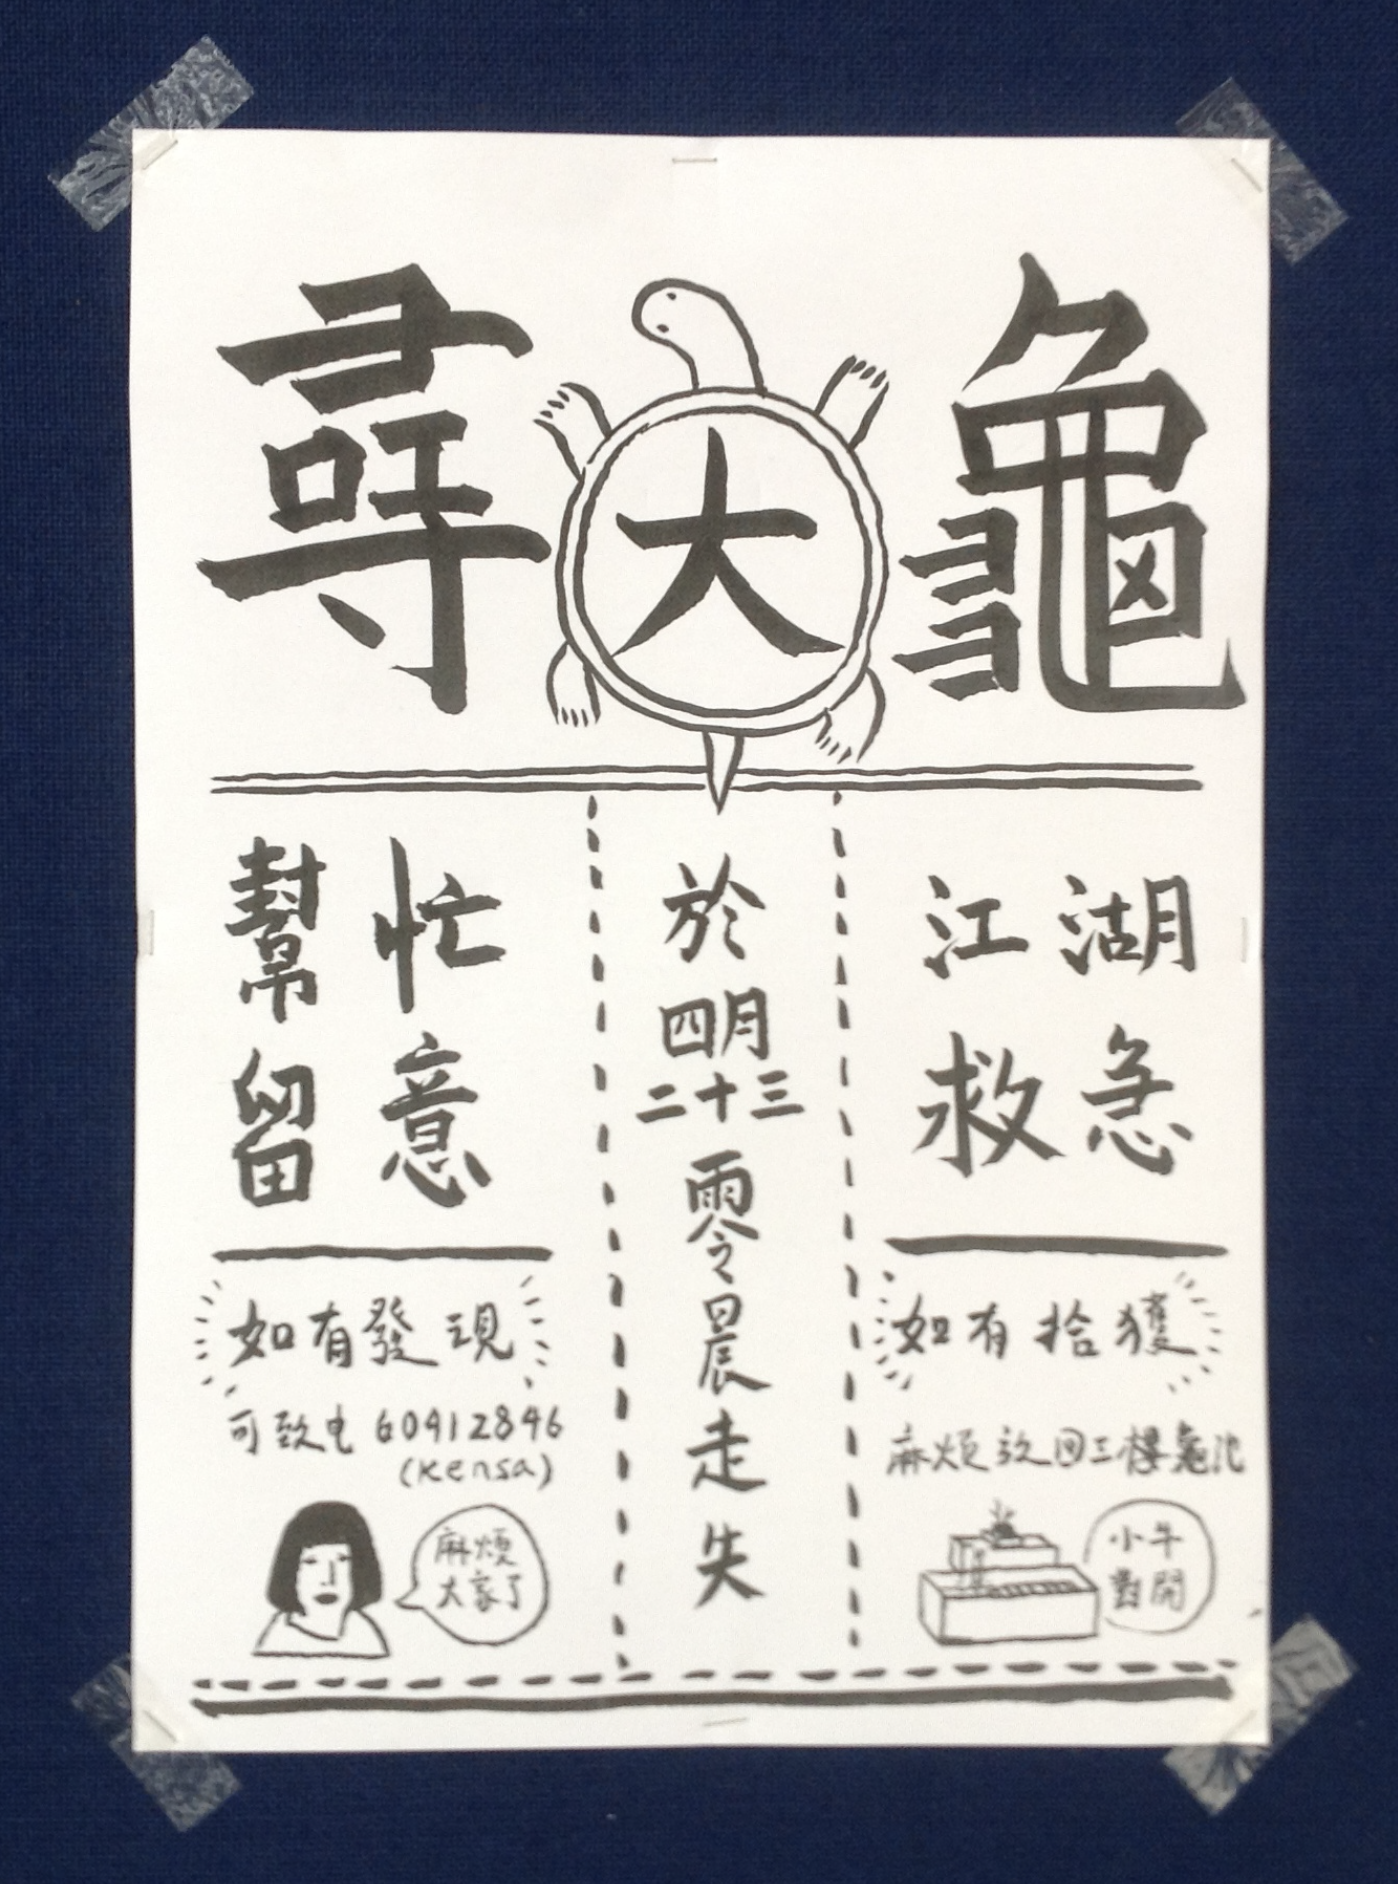 尋大龜
幫忙
留意
如有發現
可致电 60412846
(Kensa)
麻煩
大家了
於
四月
二十三
零
晨
走
失
江湖
救急
如有拾獲
麻煩放回三樓龜池
小牛
對開